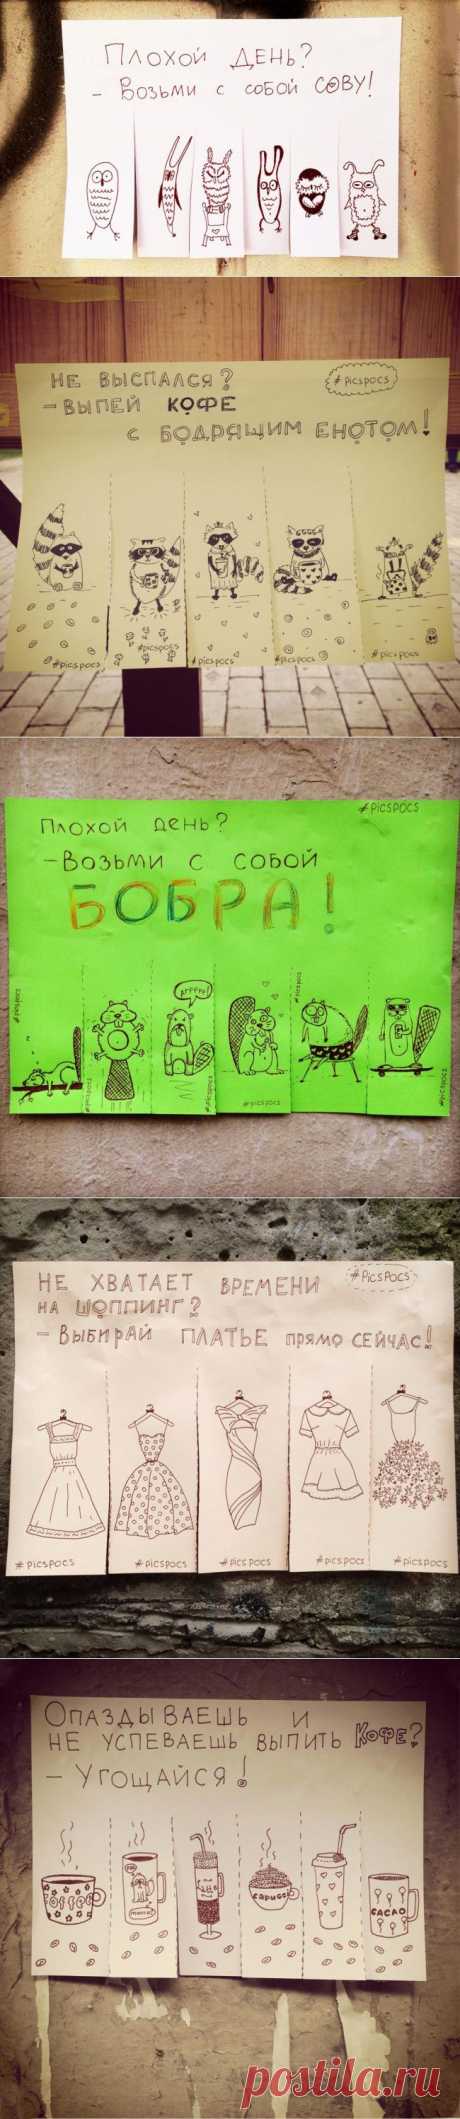 Плохой день?
- Возьми с собой СОВУ!
Не выспался?
#picspocs
- Выпей кофе
с бодрящим енотом!
#picspocs
#picspocs
#picspocs
#picspocs
Плохой день?
- Возьми с собой
БОБРА!
#picspocs
Arrrrr!
#picspocs
#picspocs
#picspocs
#picspocs
#picspocs
#picspocs
Не хватает времени
#picspocs
на шоппинг?
- Выбирай платье прямо сейчас!
#picspocs
#picspocs
#picspocs
#picspocs
#picspocs
Опаздываешь и
не успеваешь выпить кофе?
- Угощайся!
COFFEE
CACAO
postila.ru